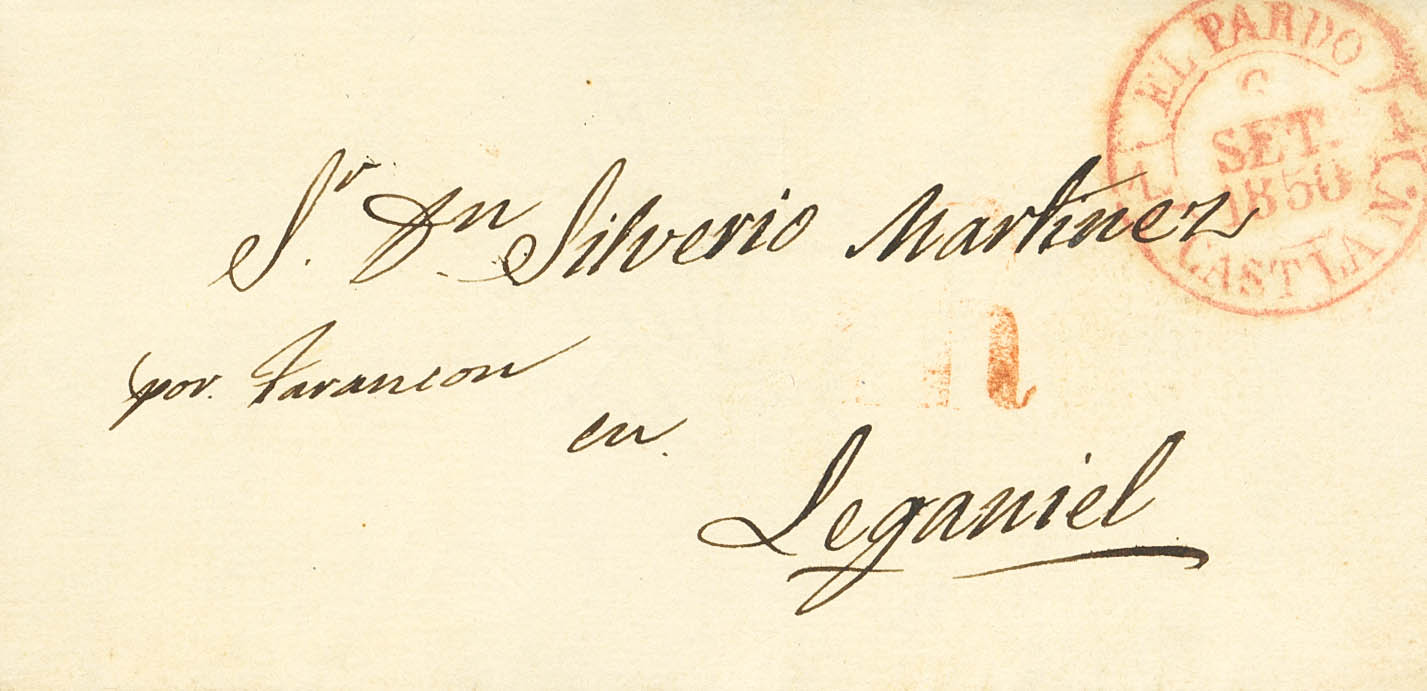 EL PARDO
SET.
1850
CAST LA N
Sr. Dn Silverio Martinez
por. Tarancon
en.
Leganiel